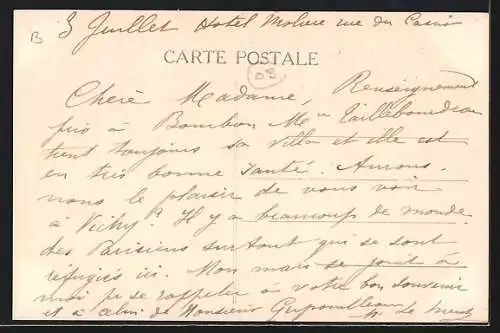 B 3 Juillet Hotel Moliere rue du Casino
CARTE POSTALE
Chère Madame, Renseignement
pris à Bourbon Mme Taillebourdeau
tient toujours sa villa et elle est
en très bonne santé. Aurons
nous le plaisir de vous voir
à Vichy? Il y a beaucoup de monde
des Parisiens surtout qui se sont
réfugiés ici. Mon mari se joint à
moi pr se rappeler à votre bon souvenir
et à celui de Monsieur